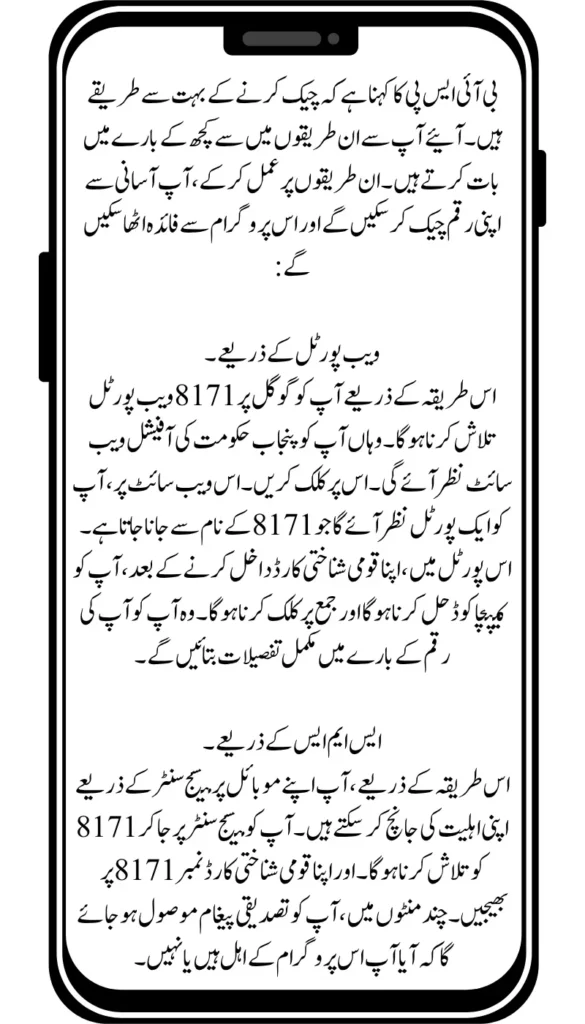 بی آئی ایس پی کا کہنا ہے کہ چیک کرنے کے بہت سے طریقے
ہیں۔ آیئے آپ سے ان طریقوں میں سے کچھ کے بارے میں
بات کرتے ہیں۔ ان طریقوں پر عمل کرکے، آپ آسانی سے
اپنی رقم چیک کر سکیں گے اور اس پروگرام سے فائدہ اٹھا سکیں
گے:
ویب پورٹل کے ذریعے۔
اس طریقہ کے ذریعے آپ کو گوگل پر 8171 ویب پورٹل
تلاش کرنا ہوگا۔ وہاں آپ کو پنجاب حکومت کی آفیشل ویب
سائٹ نظر آئے گی۔ اس پر کلک کریں۔ اس ویب سائٹ پر، آپ
کو ایک پورٹل نظر آئے گا جو 8171 کے نام سے جانا جاتا ہے۔
اس پورٹل میں، اپنا قومی شناختی کارڈ داخل کرنے کے بعد، آپ کو
کیپچا کوڈ حل کرنا ہوگا اور جمع پر کلک کرنا ہوگا۔ وہ آپ کو آپ کی
رقم کے بارے میں مکمل تفصیلات بتائیں گے۔
ایس ایم ایس کے ذریعے۔
اس طریقہ کے ذریعے، آپ اپنے موبائل پر میسج سنٹر کے ذریعے
اپنی اہلیت کی جانچ کر سکتے ہیں۔ آپ کو میسج سنٹر پر جا کر 8171
کو تلاش کرنا ہوگا۔ اور اپنا قومی شناختی کارڈ نمبر 8171 پر
بھیجیں۔ چند منٹوں میں، آپ کو تصدیقی پیغام موصول ہو جائے
گا کہ آیا آپ اس پروگرام کے اہل ہیں یا نہیں۔